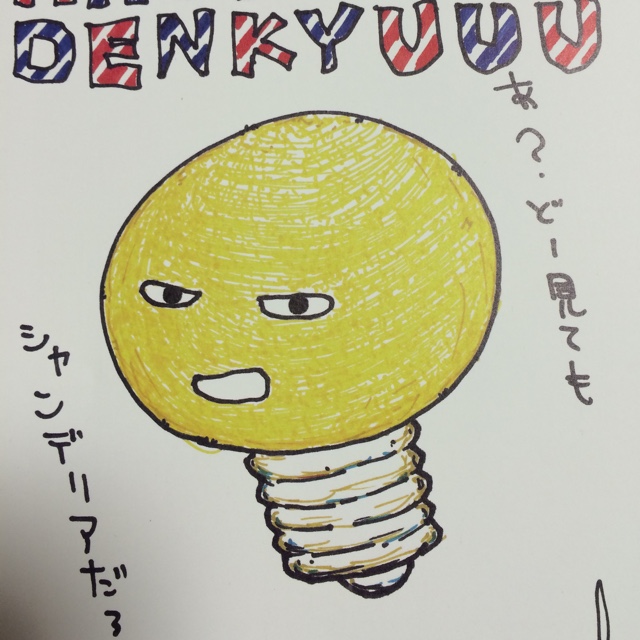 DENKYUUU
あ?.どー見ても
シャンデリアだろ